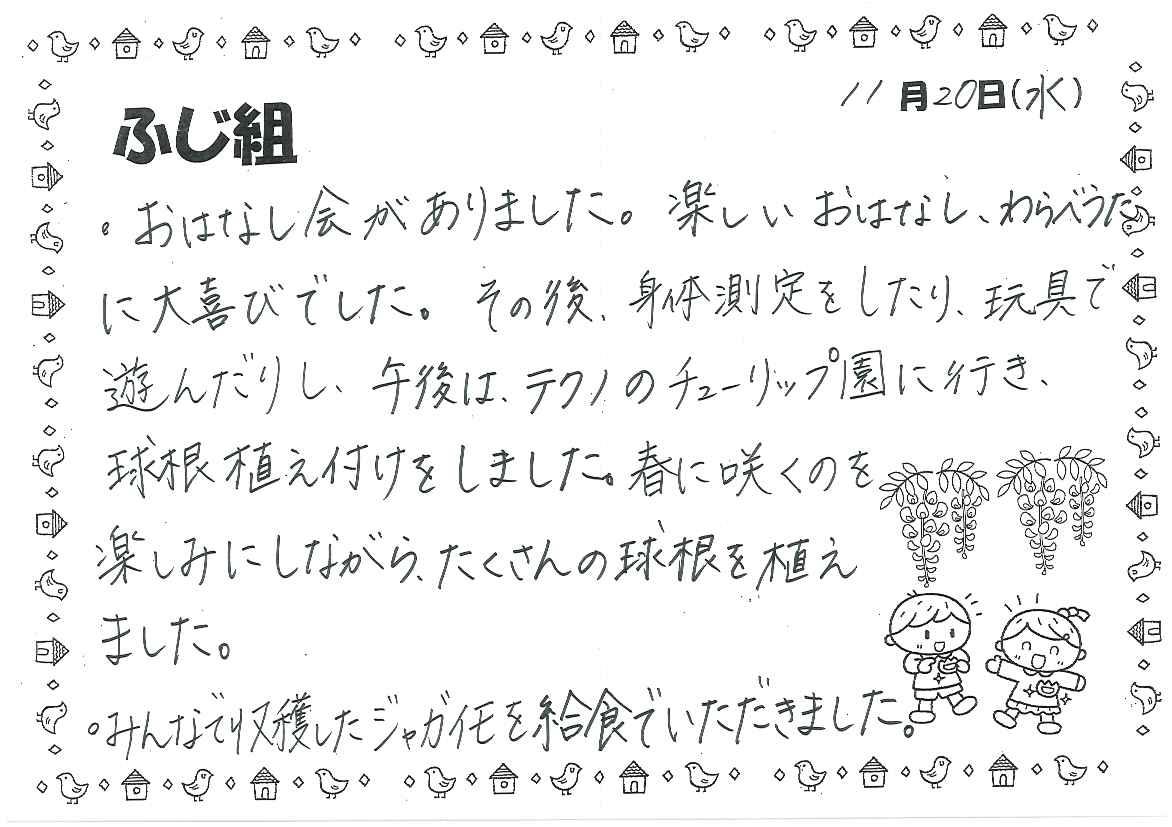 11月20日(水)
ふじ組
。おはなし会がありました。楽しいおはなし、わらべうた
に大喜びでした。その後、身体測定をしたり、玩具で
遊んだりし、午後は、テクノのチューリップ園に行き、
球根植え付けをしました。春に咲くのを
楽しみにしながら、たくさんの球根を植え
ました。
。みんなで収穫したジャガイモを給食でいただきました。